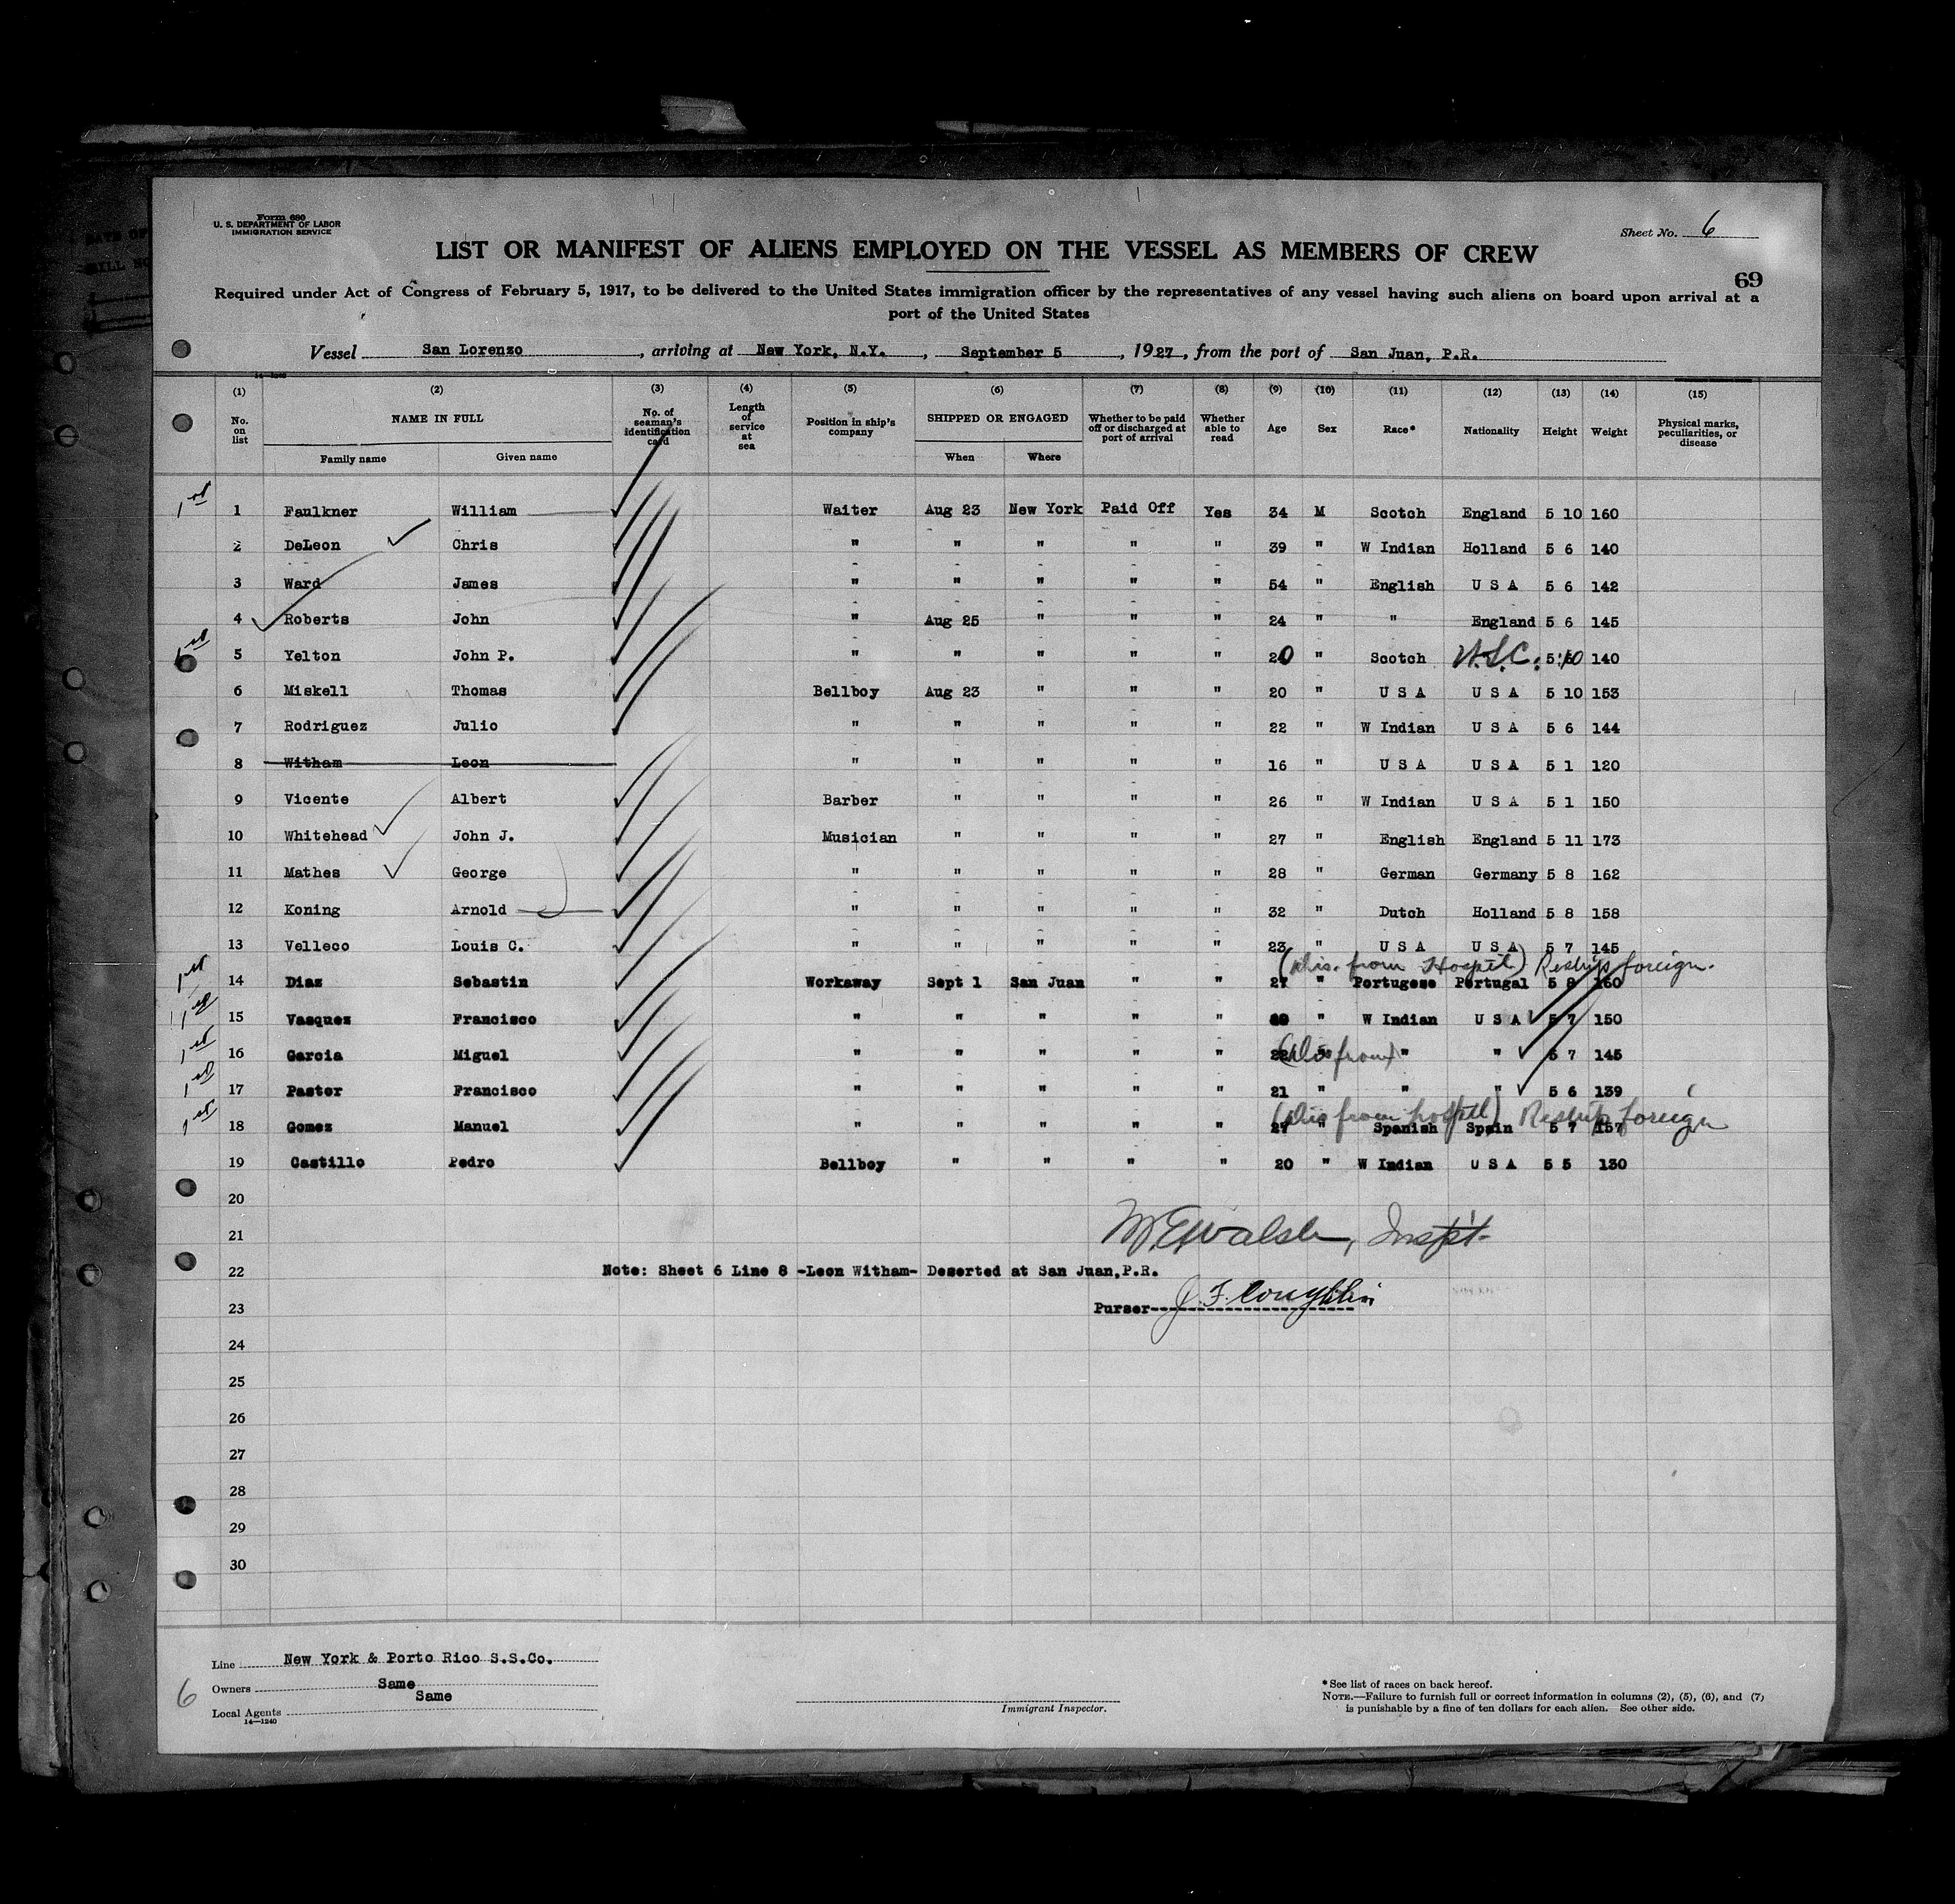 Form 680
U. S. DEPARTMENT OF LABOR
IMMIGRATION SERVICE
Sheet No. 6
LIST OR MANIFEST OF ALIENS EMPLOYED ON THE VESSEL AS MEMBERS OF CREW
69
Required under Act of Congress of February 5, 1917, to be delivered to the United States immigration officer by the representatives of any vessel having such aliens on board upon arrival at a
port of the United States
Vessel San Lorenzo, arriving at New York, N.Y., September 5, 1927, from the port of San Juan, P.R.
(1) (2) (3) (4) (5) (6) (7) (8) (9) (10) (11) (12) (13) (14) (15)
No. on list NAME IN FULL No. of seaman's identification card Length of service at sea Position in ship's company SHIPPED OR ENGAGED Whether to be paid off or discharged at port of arrival Whether able to read Age Sex Race* Nationality Height Weight Physical marks, peculiarities, or disease
Family name Given name When Where
1st 1 Faulkner William Waiter Aug 23 New York Paid Off Yes 34 M Scotch England 5 10 160
2 DeLeon Chris " " " " " 39 " W Indian Holland 5 6 140
3 Ward James " " " " " 54 " English U S A 5 6 142
4 Roberts John " Aug 25 " " " 24 " " England 5 6 145
5 Yelton John P. " " " " " 20 " Scotch U.S.C. 5 10 140
6 Miskell Thomas Bellboy Aug 23 " " " 20 " U S A U S A 5 10 153
7 Rodriguez Julio " " " " " 22 " W Indian U S A 5 6 144
8 Witham Leon " " " " " 16 " U S A U S A 5 1 120
9 Vicente Albert Barber " " " " 26 " W Indian U S A 5 1 150
10 Whitehead John J. Musician " " " " 27 " English England 5 11 173
11 Mathes George " " " " " 28 " German Germany 5 8 162
12 Koning Arnold " " " " " 32 " Dutch Holland 5 8 158
13 Velleco Louis C. " " " " " 23 " U S A U S A 5 7 145
(dis. from Hospital) Reship foreign.
1st 14 Diaz Sebastin Workaway Sept 1 San Juan " " 27 " Portugese Portugal 5 8 160
1st 15 Vasquez Francisco " " " " " " W Indian U S A 5 7 150
1st 16 Garcia Miguel " " " " " 22 (dis from) " " 5 7 145
1st 17 Pastor Francisco " " " " " 21 " " " 5 6 139
(dis from hospital) Reship foreign
1st 18 Gomez Manuel " " " " " 27 " Spanish Spain 5 7 157
19 Castillo Pedro Bellboy " " " " 20 " W Indian U S A 5 5 130
20
21 M.E. Walsh, Inspt.
22 Note: Sheet 6 Line 8 -Leon Witham- Deserted at San Juan,P.R.
23 Purser J. F. Coughlin
24
25
26
27
28
29
30
Line New York & Porto Rico S.S.Co.
Owners Same
Local Agents Same
14—1240
6
Immigrant Inspector.
* See list of races on back hereof.
NOTE.—Failure to furnish full or correct information in columns (2), (5), (6), and (7)
is punishable by a fine of ten dollars for each alien. See other side.